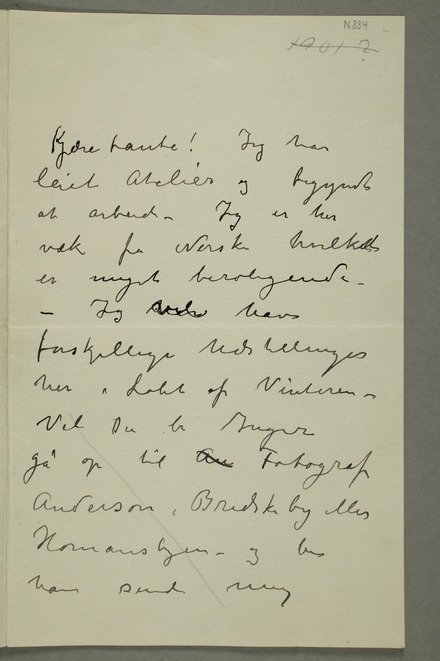 N 884
1901?
Kjære tante! Jeg har
leiet Atelier og begyndt
at arbeide – Jeg er her
væk fra Norske hvilket
er meget beroligende –
– Jeg har
forskjellige Udstillinger
her i Løbet af Vinteren –
Vil Du be Inger
gå op til An Fotograf
Anderson, Bredskeby eller
Homansbyen – og be
ham sende mig